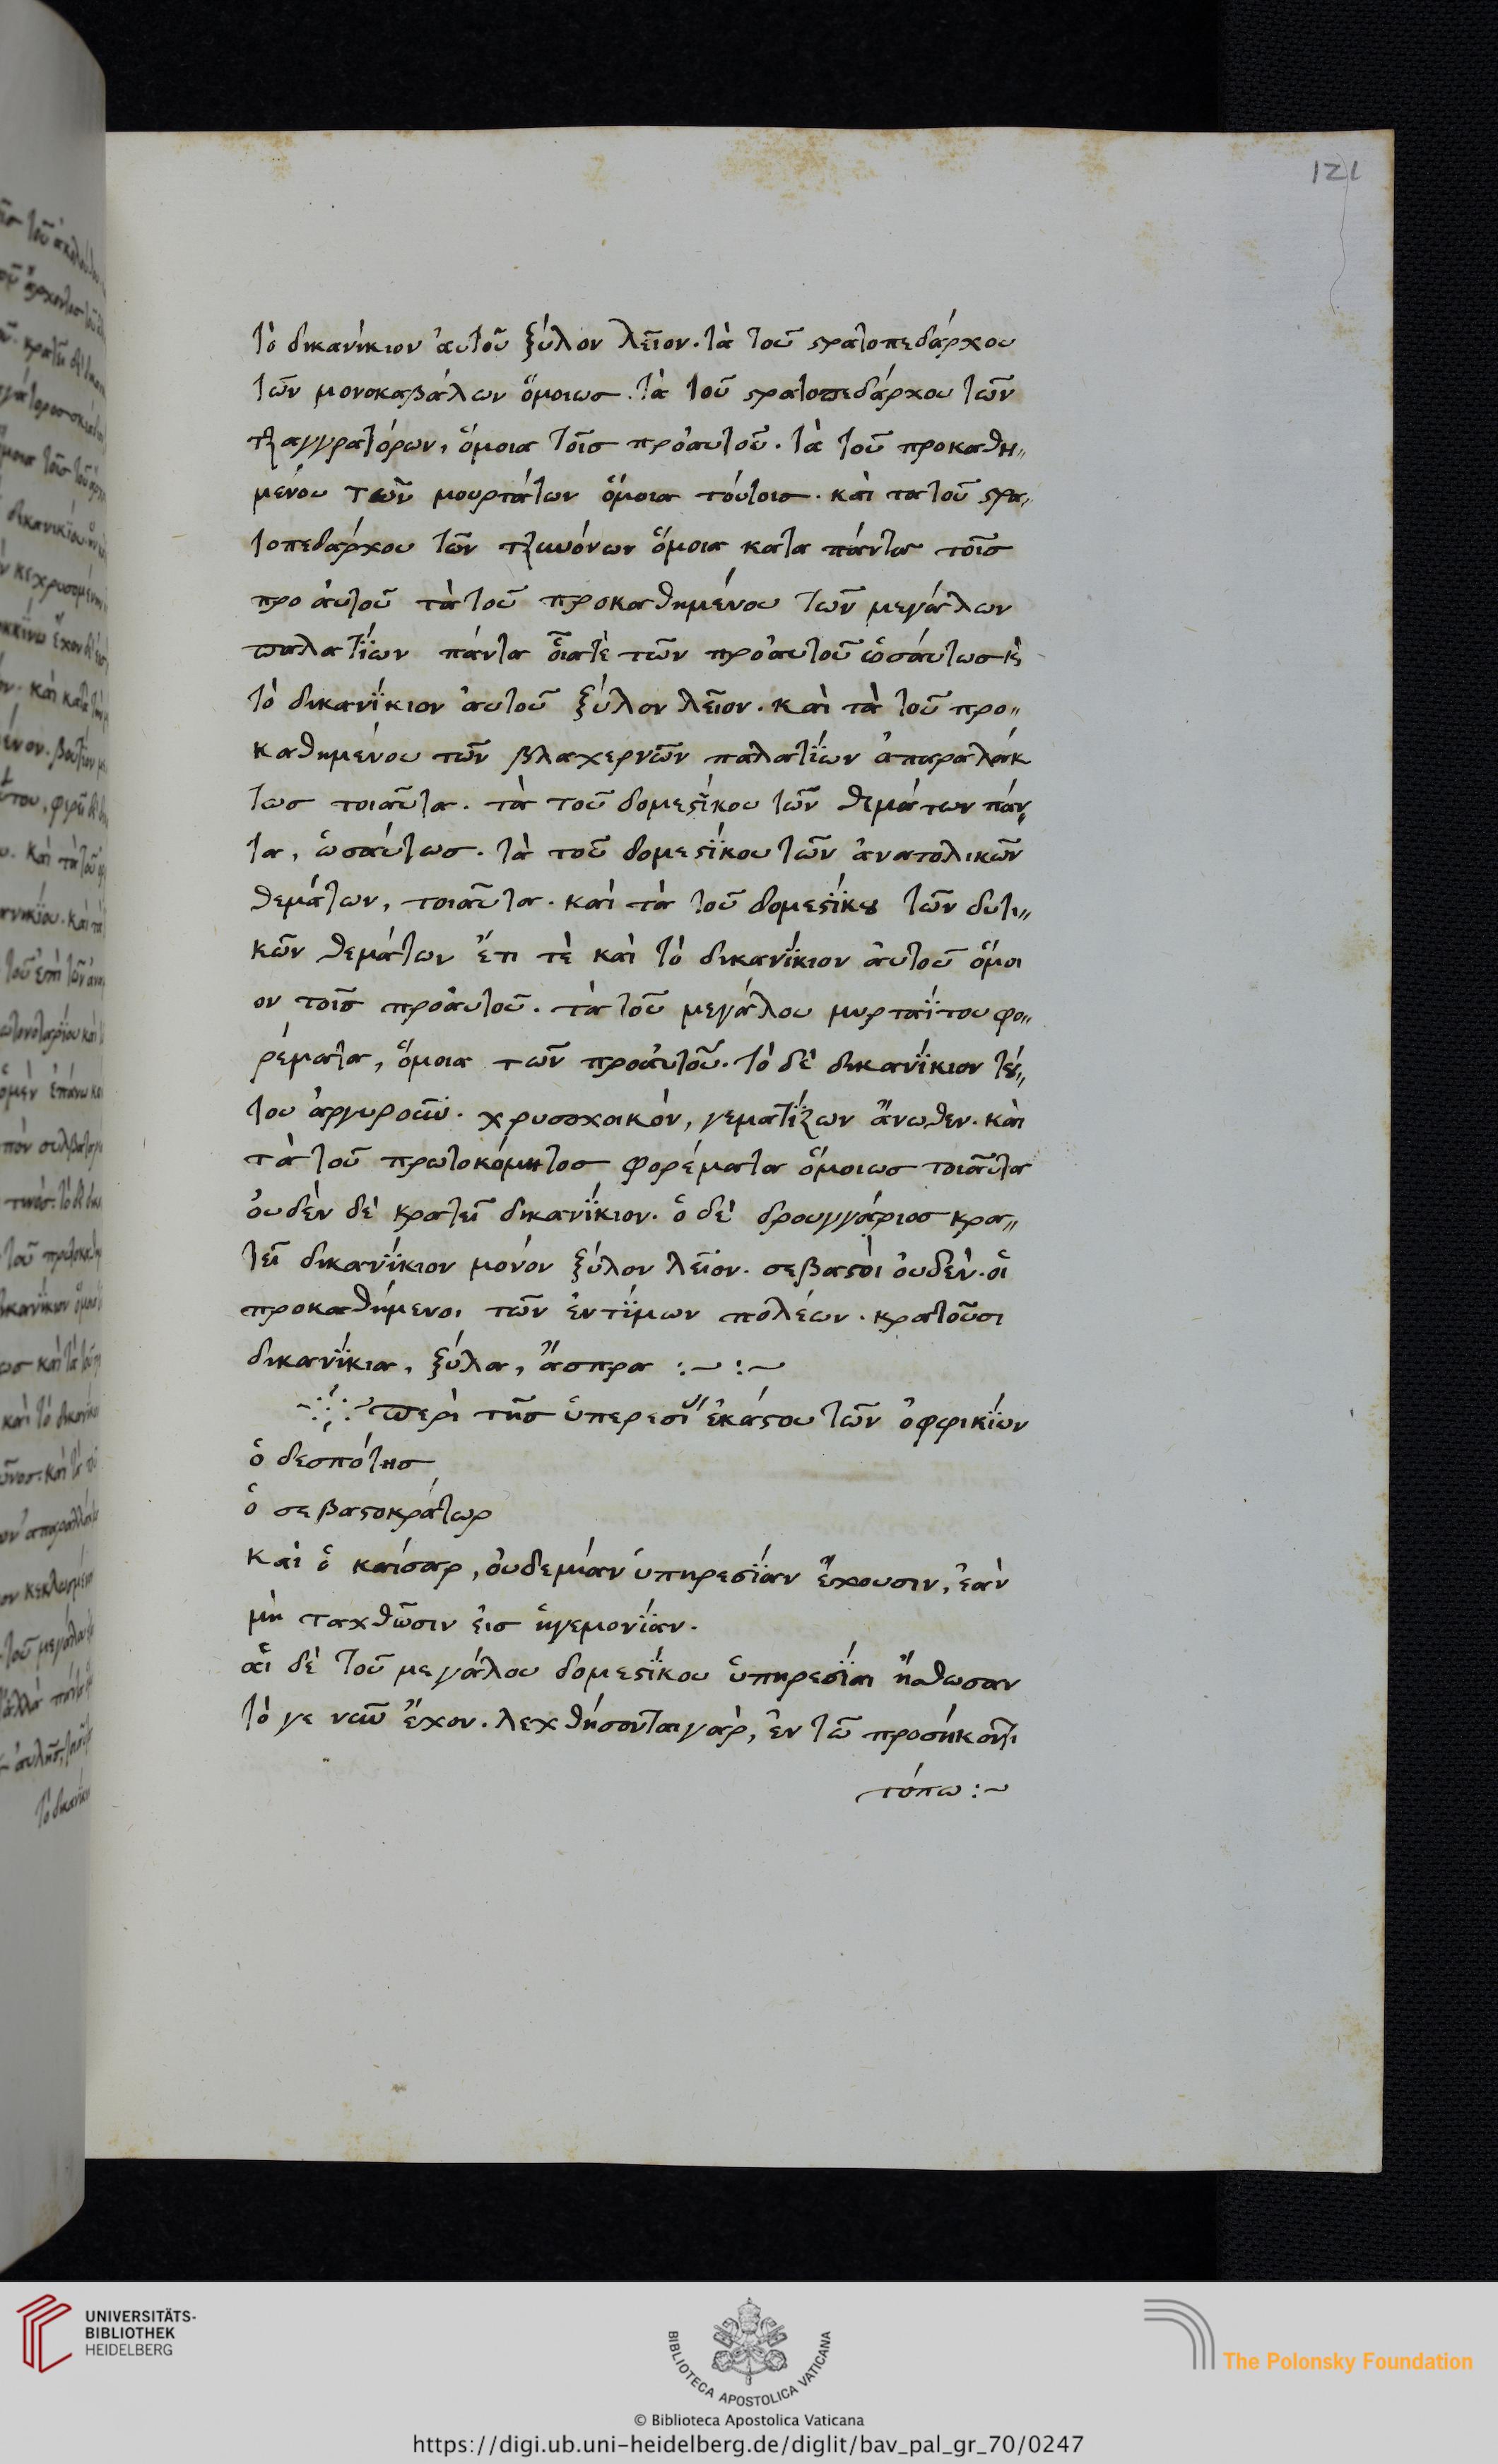 121
τὸ δικανίκιον ἀυτοῦ ξύλον λεῖον. τὰ τοῦ στρατοπεδάρχου
τῶν μονοκαβάλων ὅμοιωσ. τὰ τοῦ στρατοπεδάρχου τῶν
τζαγγρατόρων, ὅμοια τοῖσ πρὸαυτοῦ. τὰ τοῦ προκαθη„
μένου τῶν μουρτάτων ὅμοια τούτοισ. καὶ τα τοῦ στρα„
τοπεδάρχου τῶν τζακόνων ὅμοια κατα πάντα τοῖσ
προ ἀυτοῦ τὰ τοῦ προκαθημένου τῶν μεγάλων
παλατΐων πάντα οἷατὲ τῶν πρὸαυτοῦ ὡσάυτωσ κὶ
τὸ δικανΐκιον ἀυτοῦ ξύλον λεῖον. καὶ τὰ τοῦ προ„
καθημένου τῶν βλαχερνῶν παλατΐων ἀπαραλάκ
τωσ τοιαῦτα. τὰ τοῦ δομεστίκου τῶν θεμάτων πάν„
τα, ὡσάυτωσ. τὰ τοῦ δομεστίκου τῶν ἀνατολικῶν
θεμάτων, τοιαῦτα. καὶ τὰ τοῦ δομεστΐκου τῶν δυτι„
κῶν θεμάτων ἔτι τὲ καὶ τὸ δικανΐκιον ἀυτοῦ ὅμοι
ον τοῖσ πρὸαυτοῦ. τὰ τοῦ μεγάλου μυρταΐτου φο„
ρέματα, ὅμοια τῶν προἀυτοῦ. τὸ δὲ δικανΐκιον τού„
του ἀργυροῦν. χρυσοχοικόν, γεματΐζων ἄνωθεν. καὶ
τὰ τοῦ πρωτοκόμητοσ φορέματα ὅμοιωσ τοιαῦτα
ὀυδὲν δὲ κρατεῖ δικανΐκιον. ὁ δὲ δρουγγάριοσ κρα„
τεῖ δικανΐκιον μονόν ξύλον λεῖον. σεβαστὸι ὀυδέν. οἱ
προκαθήμενοι τῶν ἐντΐμων πόλέων. κρατοῦσι
δικανΐκια, ξύλα, ἄσπρα :~ :~
περὶ τῆσ ὑπερεσί ἑκάστου τῶν ὀφφικΐων
ὁ δεσπότησ
ὁ σεβαστοκράτωρ
καὶ ὁ καίσαρ, ὀυδεμίαν ὑπηρεσΐαν ἔχουσιν, ἐὰν
μὴ ταχθῶσιν ἐισ ἡγεμονΐαν.
αἱ δὲ τοῦ μεγάλου δομεστΐκου ὑπηρεσΐαι ἤσθωσαν
τὸ γε νῦν ἔχον. λεχθήσονται γάρ, ἐν τῶ προσήκοντι
τόπω :~
UNIVERSITÄTS-
BIBLIOTHEK
HEIDELBERG
BIBLIOTECA APOSTOLICA VATICANA
The Polonsky Foundation
© Biblioteca Apostolica Vaticana
https://digi.ub.uni-heidelberg.de/diglit/bav_pal_gr_70/0247